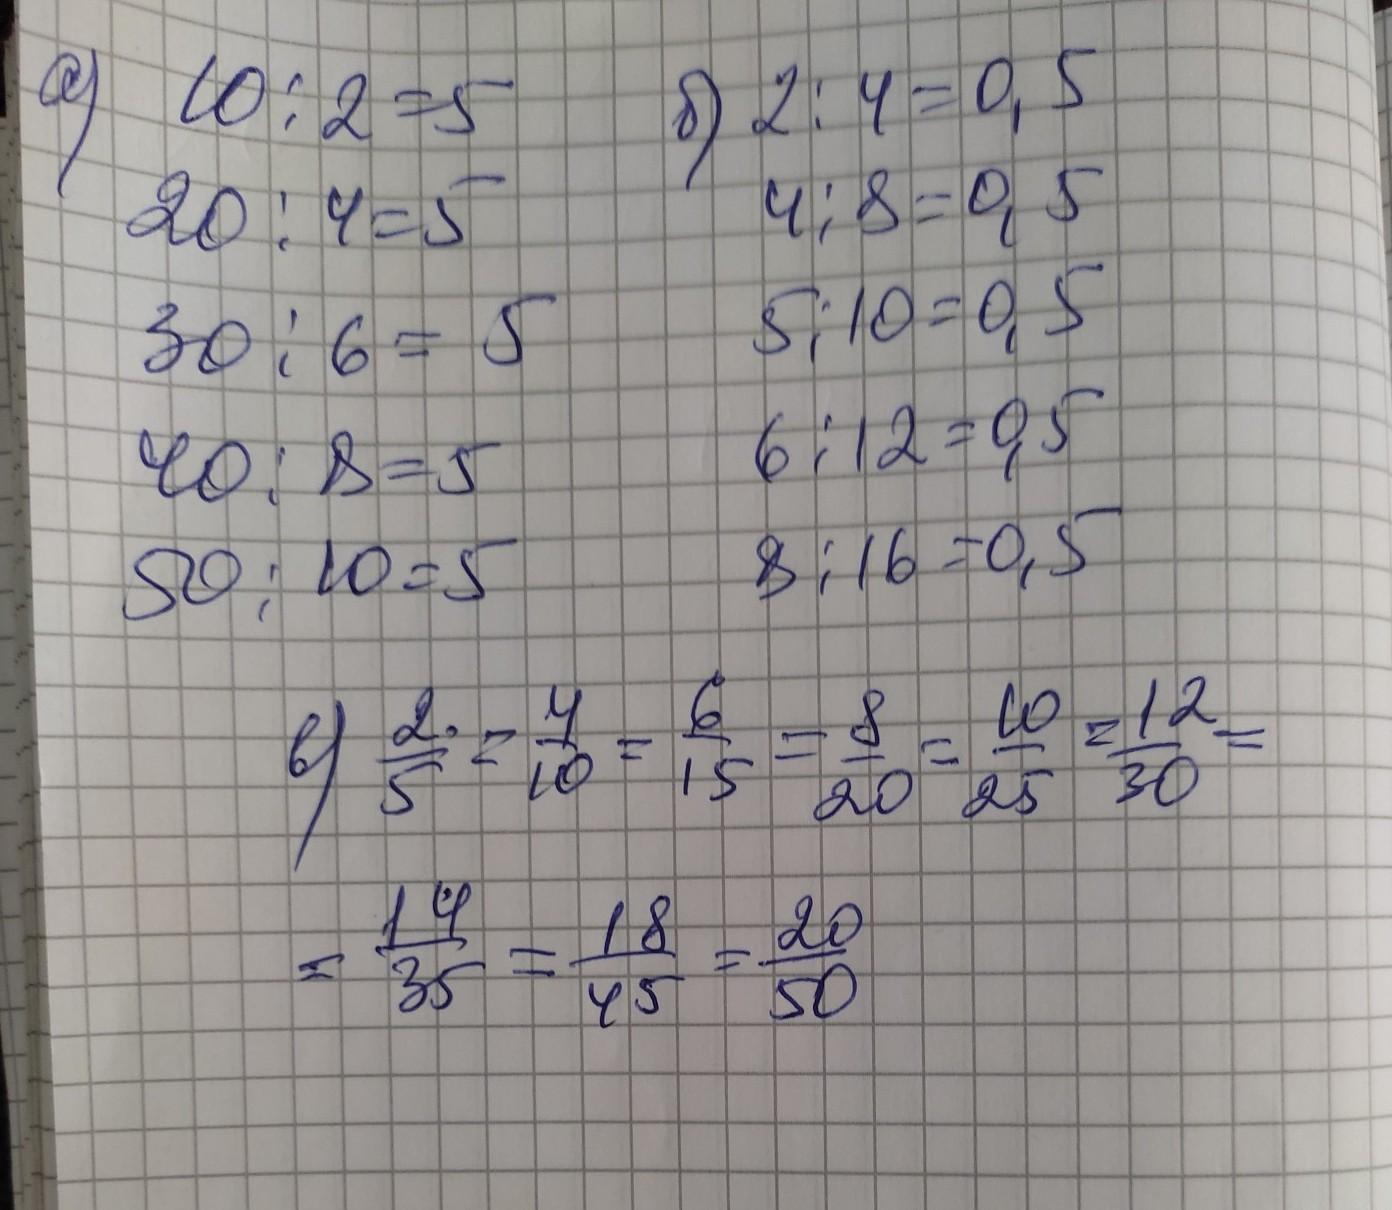 а) 10 : 2 = 5
20 : 4 = 5
30 : 6 = 5
40 : 8 = 5
50 : 10 = 5
б) 2 : 4 = 0,5
4 : 8 = 0,5
5 : 10 = 0,5
6 : 12 = 0,5
8 : 16 = 0,5
в) 2/5 = 4/10 = 6/15 = 8/20 = 10/25 = 12/30 =
= 14/35 = 18/45 = 20/50